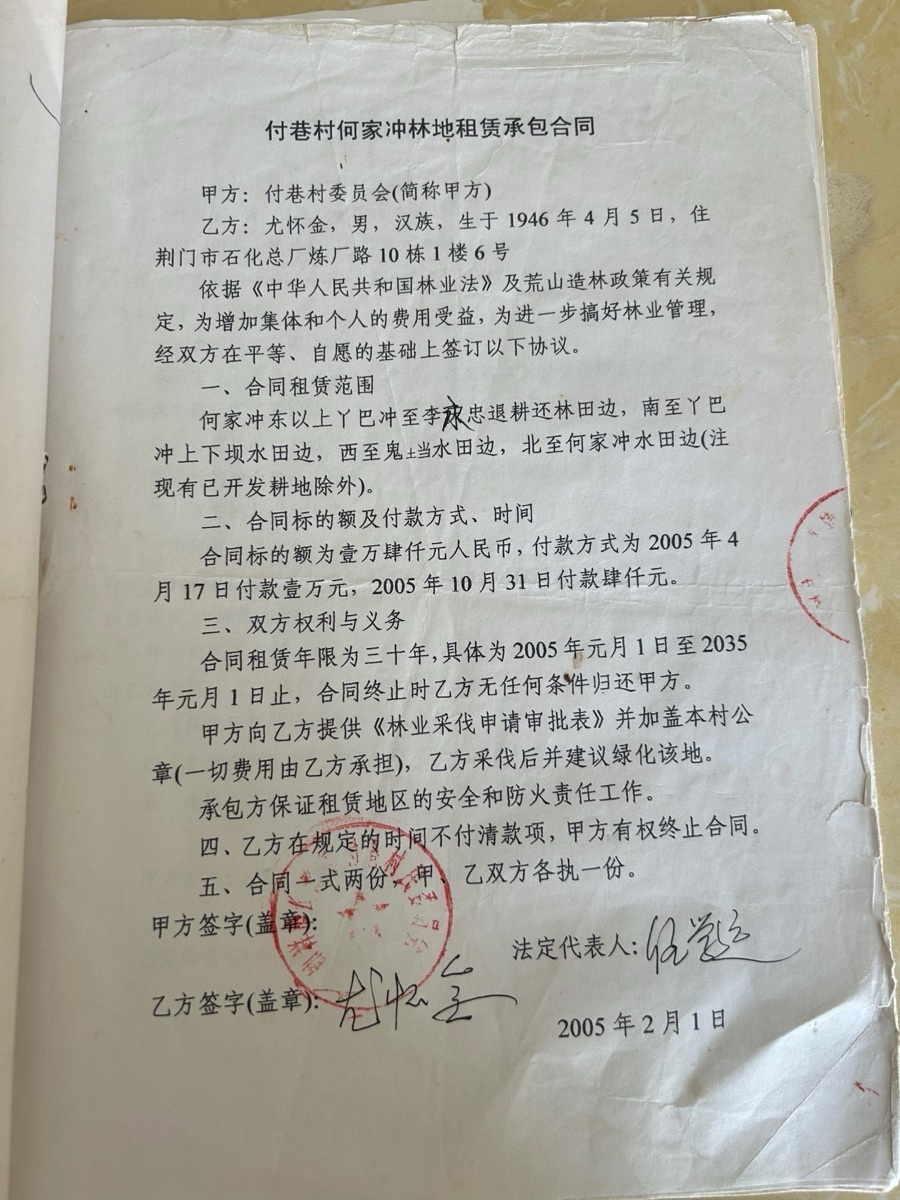 付巷村何家冲林地租赁承包合同
甲方：付巷村委员会(简称甲方)
乙方：尤怀金，男，汉族，生于 1946 年 4 月 5 日，住
荆门市石化总厂炼厂路 10 栋 1 楼 6 号
依据《中华人民共和国林业法》及荒山造林政策有关规
定，为增加集体和个人的费用受益，为进一步搞好林业管理，
经双方在平等、自愿的基础上签订以下协议。
一、合同租赁范围
何家冲东以上丫巴冲至李永忠退耕还林田边，南至丫巴
冲上下坝水田边，西至鬼土当水田边，北至何家冲水田边(注
现有已开发耕地除外)。
二、合同标的额及付款方式、时间
合同标的额为壹万肆仟元人民币，付款方式为 2005 年 4
月 17 日付款壹万元，2005 年 10 月 31 日付款肆仟元。
三、双方权利与义务
合同租赁年限为三十年，具体为 2005 年元月 1 日至 2035
年元月 1 日止，合同终止时乙方无任何条件归还甲方。
甲方向乙方提供《林业采伐申请审批表》并加盖本村公
章(一切费用由乙方承担)，乙方采伐后并建议绿化该地。
承包方保证租赁地区的安全和防火责任工作。
四、乙方在规定的时间不付清款项，甲方有权终止合同。
五、合同一式两份，甲、乙双方各执一份。
甲方签字(盖章)：
法定代表人：
乙方签字(盖章)：尤怀金
2005 年 2 月 1 日